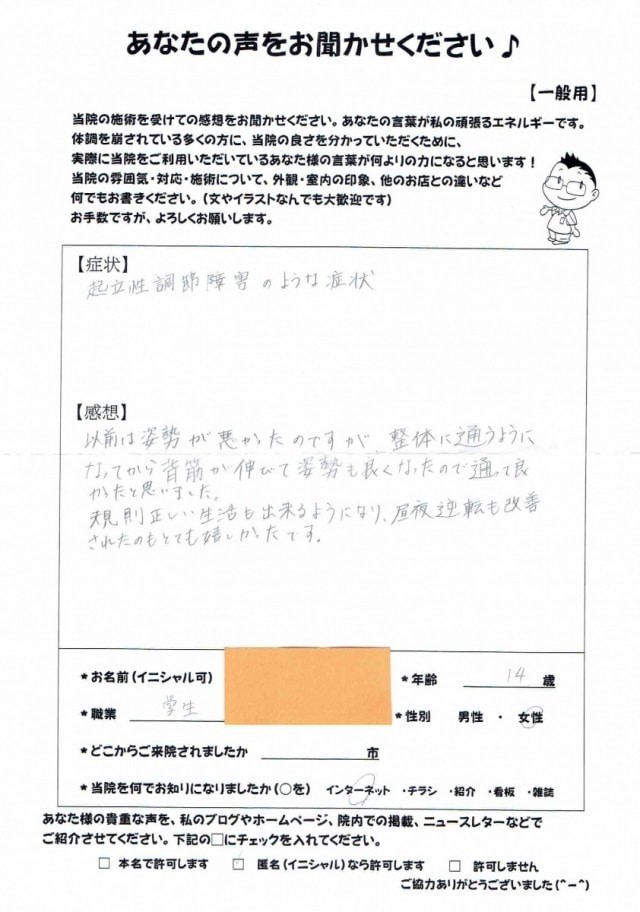 あなたの声をお聞かせください♪
【一般用】
当院の施術を受けての感想をお聞かせください。あなたの言葉が私の頑張るエネルギーです。
体調を崩されている多くの方に、当院の良さを分かっていただくために、
実際に当院をご利用いただいているあなた様の言葉が何よりの力になると思います！
当院の雰囲気・対応・施術について、外観・室内の印象、他のお店との違いなど
何でもお書きください。（文やイラストなんでも大歓迎です）
お手数ですが、よろしくお願いします。
【症状】
起立性調節障害のような症状
【感想】
以前は姿勢が悪かったのですが、整体に通うように
なってから背筋が伸びて姿勢も良くなったので通って良
かったと思いました。
規則正しい生活も出来るようになり、昼夜逆転も改善
されたのもとても嬉しかったです。
*お名前（イニシャル可）
*年齢 14 歳
*職業 学生
*性別 男性 ・ 女性
*どこからご来院されましたか 市
*当院を何でお知りになりましたか（○を） インターネット ・チラシ ・紹介 ・看板 ・雑誌
あなた様の貴重な声を、私のブログやホームページ、院内での掲載、ニュースレターなどで
ご紹介させてください。下記の□にチェックを入れてください。
□ 本名で許可します □ 匿名（イニシャル）なら許可します □ 許可しません
ご協力ありがとうございました（^－^）